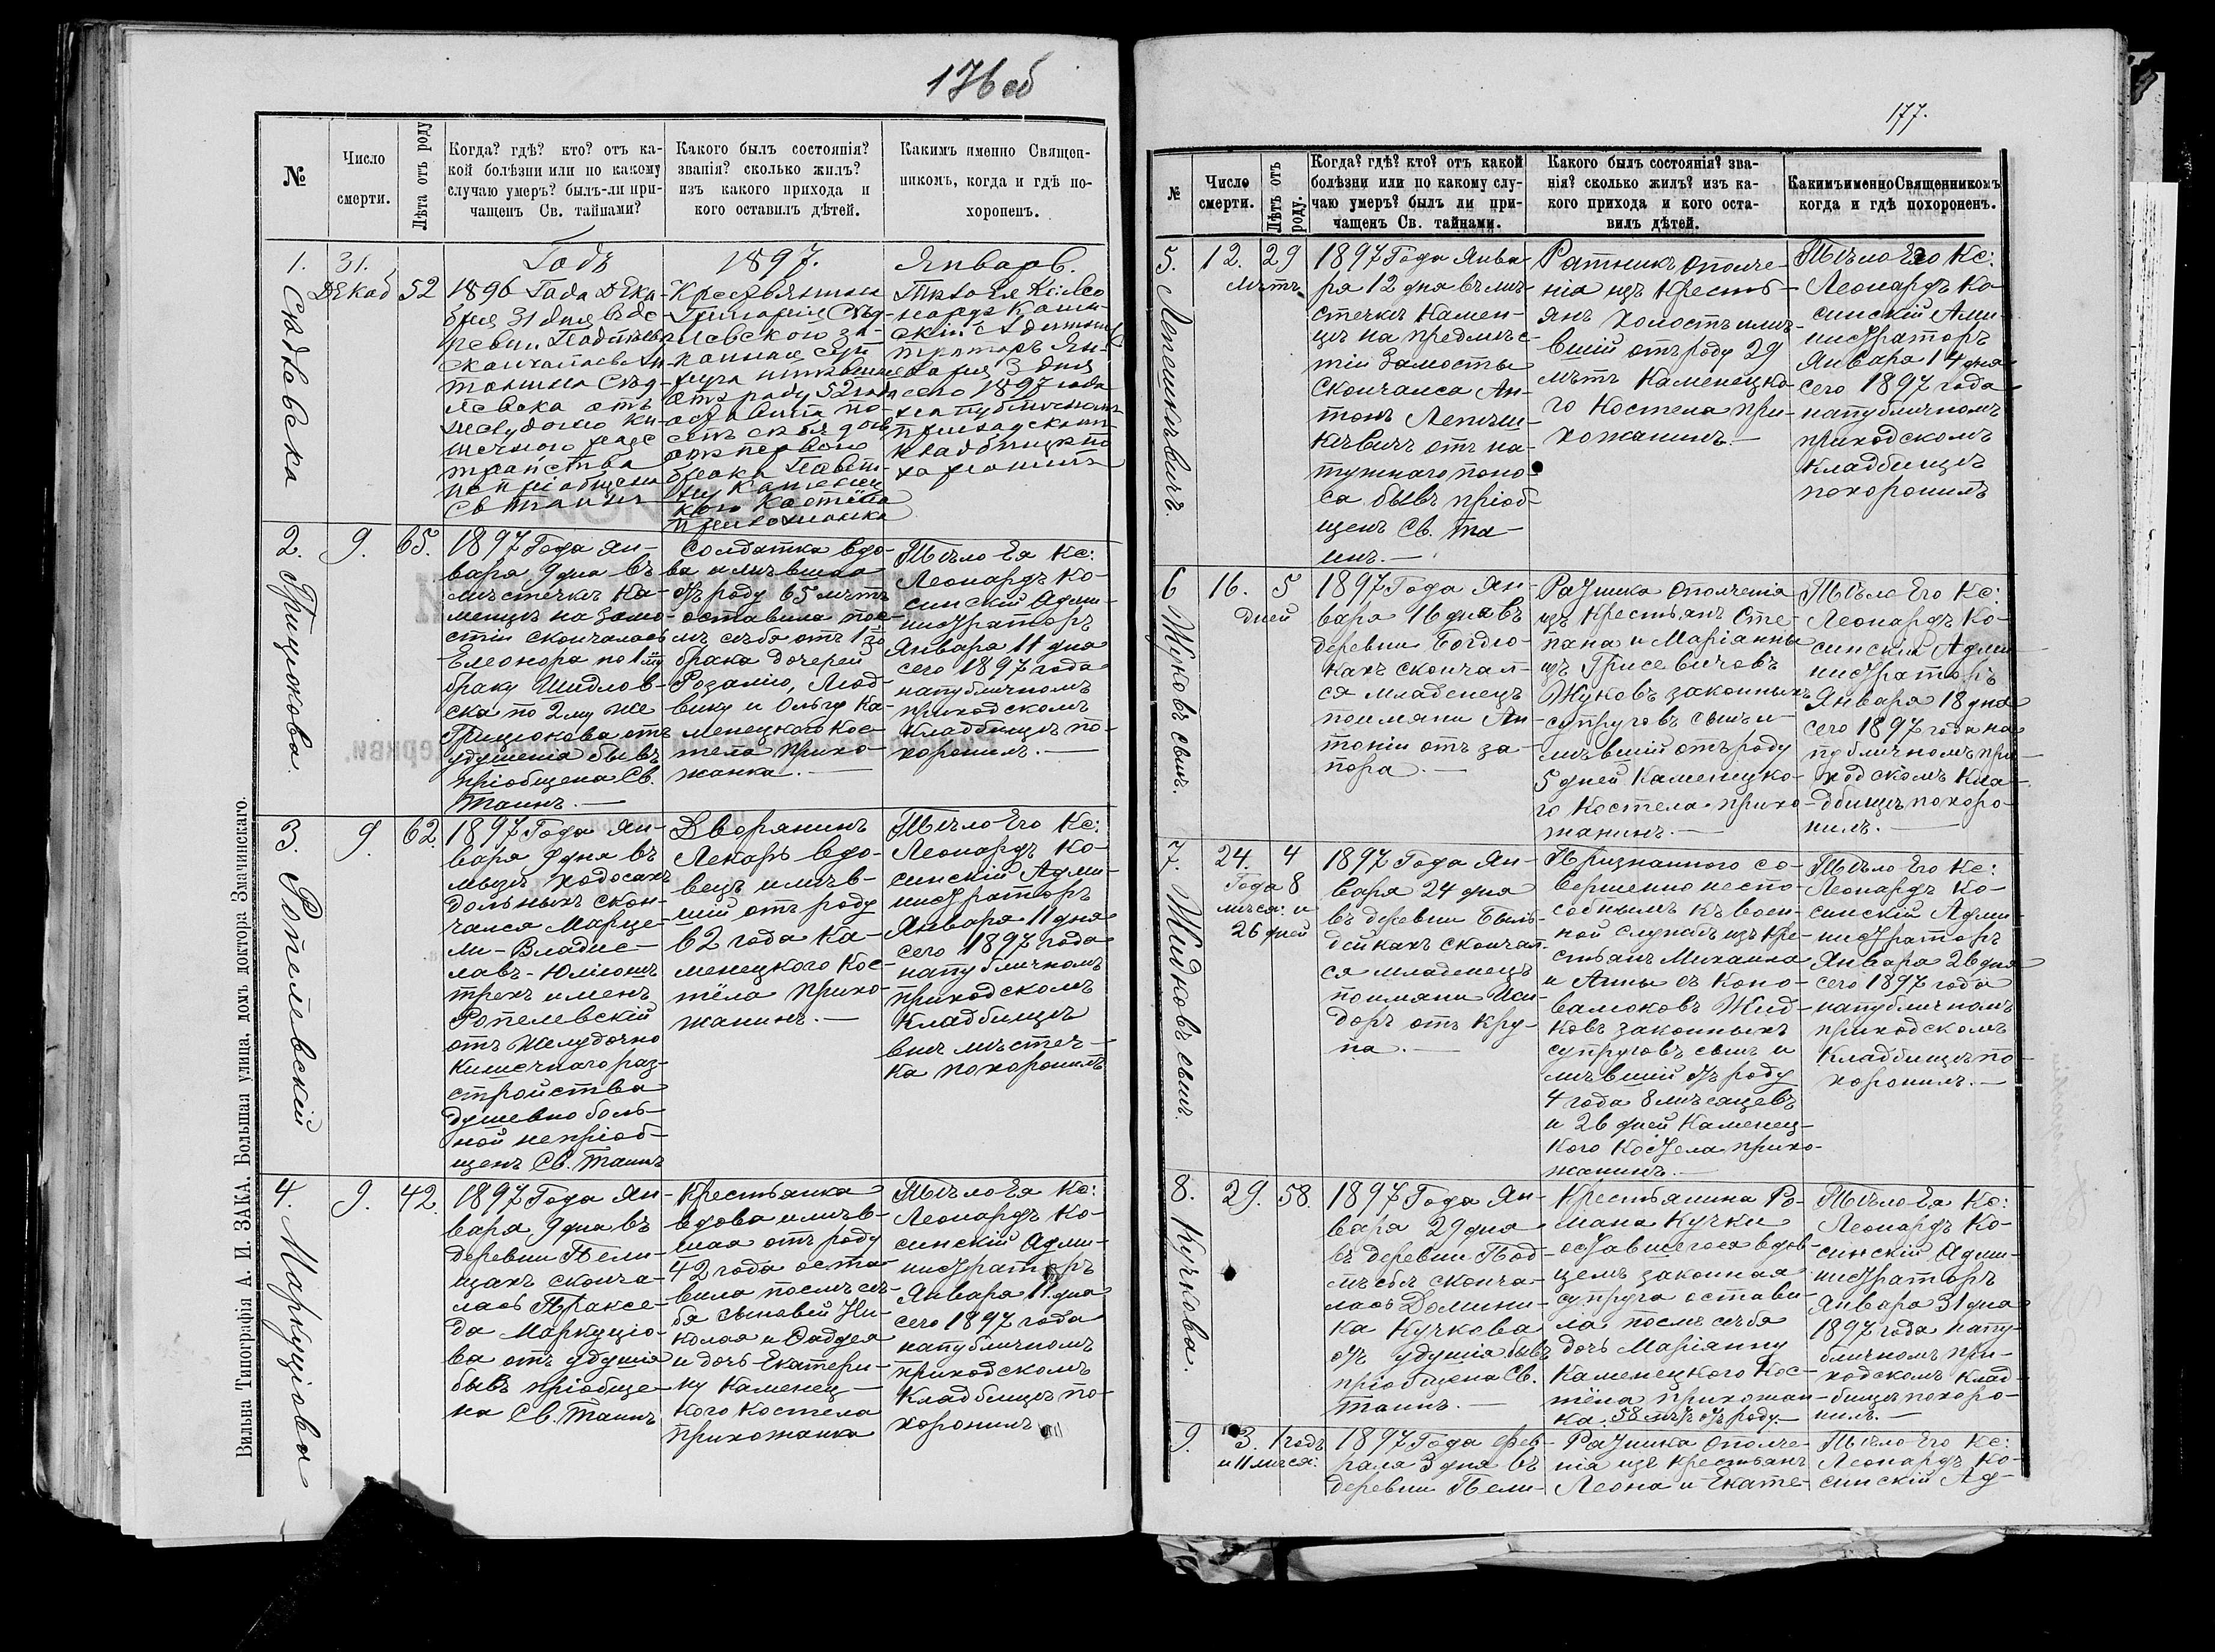 176 об
№
Число
смерти.
Лѣта отъ роду
Когда? гдѣ? кто? отъ ка-
кой болѣзни или по какому
случаю умеръ? былъ-ли при-
чащенъ Св. тайнами?
Какого былъ состоянія?
званія? сколько жилъ?
изъ какого прихода и
кого оставилъ дѣтей.
Какимъ именно Священ-
никомъ, когда и гдѣ по-
хороненъ.
Годъ
1897.
Январь.
1.
31.
Декаб
52
1896 Года Дека-
бря 31 дня въ де
скончалась Ан-
тонина Сѣд-
левска отъ
тройства
Св Таинъ
Крестьянина
Григорія Сѣд-
левского за-
конная суп
отъ роду 52 года
отъ первого
брака
кого Костёла
прихожанка
Тѣло Ея Кс: Лео
нардъ Косин-
скій Админис
траторъ Ян-
варя 3 дня
сего 1897 года
на публичномъ
приходскомъ
кладбищѣ по
хоронилъ
2. Грицюкова.
9.
65.
1897 Года Ян-
варя 9 дня въ
мѣстечкѣ Ка-
менцѣ на Замо-
стіи скончалась
Елеонора по 1му
браку Шидлов-
ска по 2му же
Грицюкова отъ
удушенія бывъ
пріобщена Св.
Таинъ.—
Солдатка вдо-
ва имѣвшая
отъ роду 65 лѣтъ
оставила пос-
лѣ себя отъ 1го
брака дочерей
Розалію, Люд-
вику и Ольгу Ка-
менецкого Кос-
тела прихо-
жанка.—
Тѣло Ея Кс:
Леонардъ Ко-
синскій Адми-
нистраторъ
Января 11 дня
сего 1897 года
на публичномъ
приходскомъ
Кладбищѣ по-
хоронилъ.—
3. Ропелевскій
9.
62.
1897 Года Ян-
варя 9 дня въ
мызѣ Ходосахъ
Дольныхъ скон-
чался Марце-
ли-Владис-
лавъ-Юліонъ
трехъ именъ
Ропелевскій
отъ Желудочно
Кишечнаго раз-
стройства
душевно боль-
ной непріоб-
щенъ Св. Таинъ
Дворянинъ
Лекарь вдо-
вецъ имѣв-
шій отъ роду
62 года Ка-
менецкого Кос-
тёла прихо-
жанинъ.—
Тѣло Его Кс:
Леонардъ Ко-
синскій Адми-
нистраторъ
Января 11 дня
сего 1897 года
на публичномъ
приходскомъ
Кладбищѣ
внѣ мѣстеч-
ка похоронилъ
4. Маркуціова
9.
42.
1897 Года Ян-
варя 9 дня въ
деревни Пели-
щахъ сконча-
лась Праксе-
да Маркуціо-
ва отъ удушія
бывъ пріобще-
на Св. Таинъ
Крестьянка
вдова имѣв-
шая отъ роду
42 года оста-
вила послѣ се-
бя сыновей Ни-
колая и Фаддея
и дочь Екатери-
ну Каменец-
кого Костела
прихожанка
Тѣло Ея Кс:
Леонардъ Ко-
синскій Адми-
нистраторъ
Января 11 дня
сего 1897 года
на публичномъ
приходскомъ
Кладбищѣ по-
хоронилъ
Вильна Типографія А. И. ЗАКА. Большая улица, домъ доктора Змачинскаго.
177.
№
Число
смерти.
Лѣтъ отъ
роду.
Когда? гдѣ? кто? отъ какой
болѣзни или по какому слу-
чаю умеръ? былъ ли при-
чащенъ Св. тайнами.
Какого былъ состоянія? зва-
нія? сколько жилъ? изъ ка-
кого прихода и кого оста-
вилъ дѣтей.
Какимъ именно Священникомъ
когда и гдѣ похороненъ.
5.
12.
29
лѣтъ
1897 Года Янва
ря 12 дня въ мѣ-
стечкѣ Камен-
цѣ на предмѣс-
тіи Замосты
скончался Ан-
тонъ Лепеш-
кѣвичъ отъ на-
тужнаго поно-
са бывъ пріоб-
щенъ Св. Та-
инъ.—
Ратникъ ополче-
нія изъ кресть-
янъ холостъ имѣ-
вшій отъ роду 29
лѣтъ Каменецка-
го Костела при-
хожанинъ.—
Тѣло Его Кс:
Леонардъ Ко
синскій Адми-
нистраторъ
Января 14 дня
сего 1897 года
на публичномъ
приходскомъ
Кладбищѣ
похоронилъ
6 Жуковъ сынъ.
16.
5
дней
1897 Года Ян-
варя 16 дня въ
деревни Богдю-
кахъ скончал-
ся младенецъ
по имяни Ан-
тоніи отъ за-
пора.—
Ратника ополченія
изъ крестьянъ Сте-
пана и Маріанны
изъ Грисевичовъ
Жуковъ законныхъ
супруговъ сынъ и-
мѣвшій отъ роду
5 дней Каменецко-
го Костела прихо-
жанинъ.—
Тѣло Его Кс:
Леонардъ Ко-
синскій Адми-
нистраторъ
Января 18 дня
сего 1897 года на
публичномъ при-
ходскомъ Кла-
дбищѣ похоро-
нилъ.—
7. Жидковъ сынъ.
24.
4
Года 8
мѣся: и
26 дней
1897 Года Ян-
варя 24 дня
въ деревни Быль-
дейкахъ скончал-
ся младенецъ
по имяни Иси-
доръ отъ кру-
па.—
Признанного со-
вершенно неспо-
собнымъ къ воен-
ной службѣ изъ кре-
стьянъ Михаила
и Анны съ Коно-
валюковъ Жид-
ковъ законныхъ
супруговъ сынъ и
мѣвшій отъ роду
4 года 8 мѣсяцевъ
и 26 дней Каменец-
кого Костела прихо-
жанинъ.—
Тѣло Его Кс:
Леонардъ Ко-
синскій Адми-
нистраторъ
Января 26 дня
сего 1897 года
на публичномъ
приходскомъ
Кладбищѣ по-
хоронилъ.—
8. Кучкова.
29.
58.
1897 Года Ян-
варя 29 дня
въ деревни Под-
сконча-
лась Домини-
ка Кучкова
отъ удушія бывъ
пріобщена Св.
Таинъ.—
Крестьянина Ро-
мана Кучки
оставшегося вдов-
цемъ законная
супруга остави-
ла послѣ себя
дочь Маріанну
Каменецкого Кос-
тёла прихожан-
ка. 58 лѣтъ отъ роду.—
Тѣло Ея Кс:
Леонардъ Ко-
синскій Адми-
нистраторъ
Января 31 дня
1897 года на пу-
бличномъ при-
ходскомъ Клад-
бищѣ похоро-
нилъ.—
9.
3.
1 годъ
и 11 мѣся:
1897 Года Фев-
раля 3 дня въ
деревни Пели-
Ратника ополче-
нія изъ крестьянъ
Леона и Екате-
Тѣло Его Кс:
Леонардъ Ко-
синскій Ад-